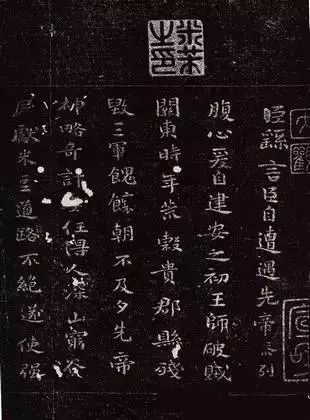 米芾之印
大觀
臣繇言臣自遭遇先帝忝列
腹心爰自建安之初王師破賊
關東時年荒穀貴郡縣殘
毀三軍餽饟朝不及夕先帝
神略奇計委任得人深山窮谷
民獻米豆道路不絕遂使強